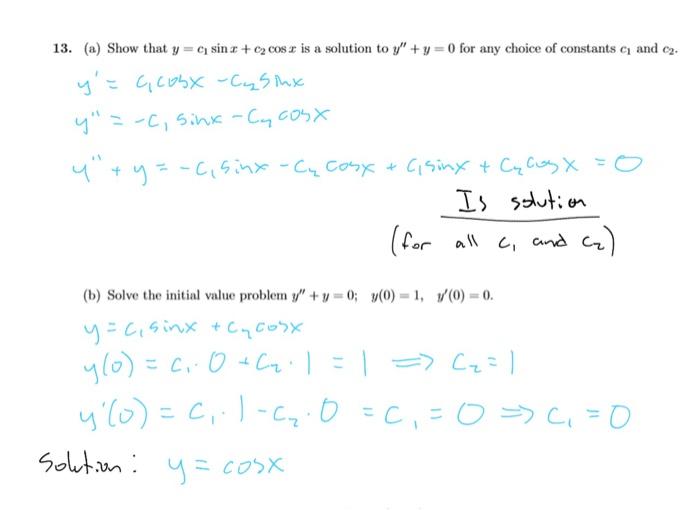 13. (a) Show that y = c₁ sin x + c₂ cos x is a solution to y″ + y = 0 for any choice of constants c₁ and c₂.
y' = c₁cosx - c₂sinx
y" = -c₁ sinx - c₂ cosx
y" + y = -c₁sinx - c₂ cosx + c₁sinx + c₂cosx = 0
Is solution
(for all c₁ and c₂)
(b) Solve the initial value problem y″ + y = 0; y(0) = 1, y′(0) = 0.
y = c₁sinx + c₂cosx
y(0) = c₁·0 + c₂·1 = 1 ⟹ c₂ = 1
y'(0) = c₁·1 - c₂·0 = c₁ = 0 ⟹ c₁ = 0
Solution: y = cosx